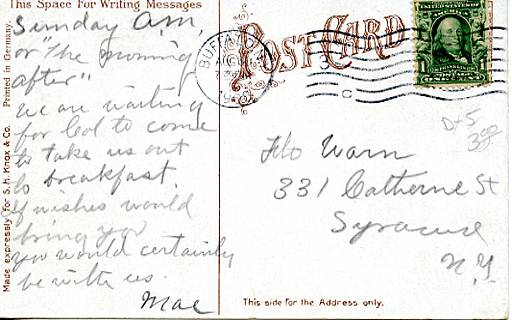 This Space For Writing Messages
Sunday A.M,
or "The morning
after"
We are waiting
for Col to come
to take us out
to breakfast.
If wishes would
bring you
you would certainly
be with us.
Mae
Printed in Germany.
Made expressly for S. H. Knox & Co.
POST CARD
BUFFALO
C
1
D-5
Flo Warn
331 Catherine St
Syracuse
N.Y.
This side for the Address only.